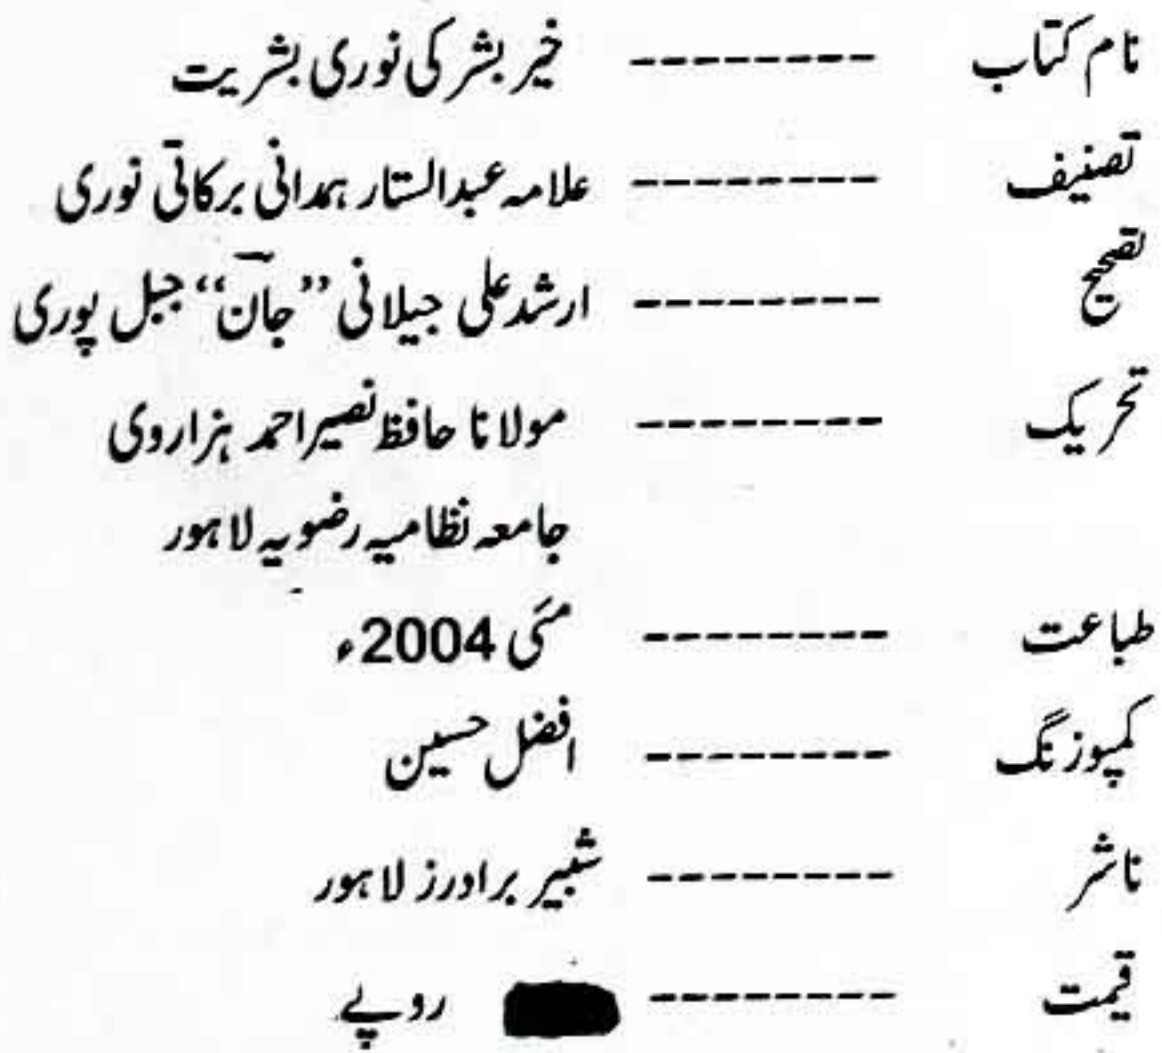 نام کتاب --------- خیر بشر کی نوری بشریت
تصنیف --------- علامہ عبدالستار ہمدانی برکاتی نوری
تصحیح --------- ارشد علی جیلانی ”جانؔ“ جبل پوری
تحریک --------- مولانا حافظ نصیر احمد ہزاروی
جامعہ نظامیہ رضویہ لاہور
طباعت --------- مئی 2004ء
کمپوزنگ --------- افضل حسین
ناشر --------- شبیر برادرز لاہور
قیمت --------- روپے